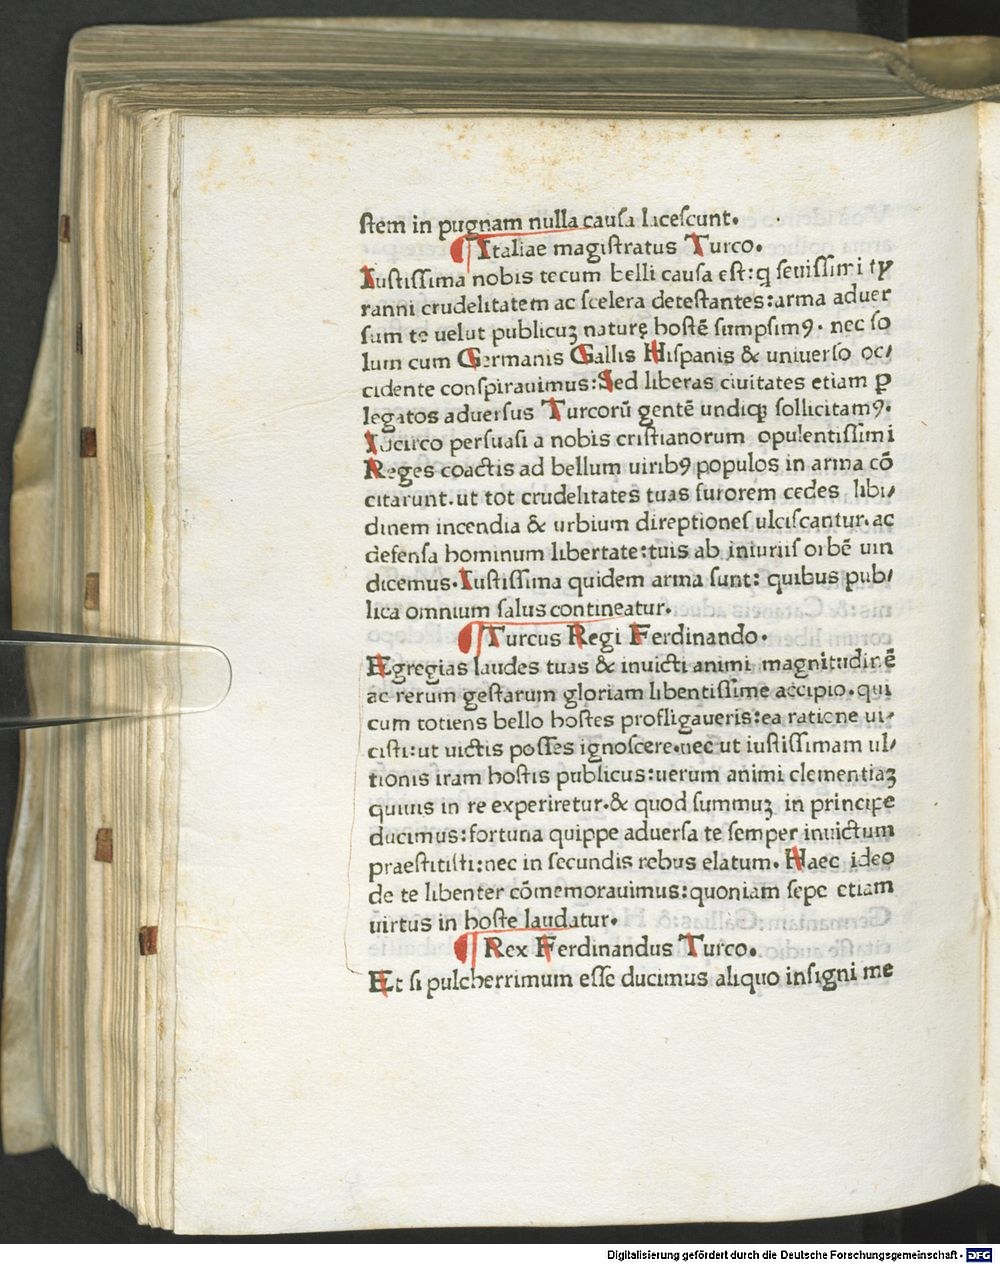 ſtem in pugnam nulla cauſa laceſcunt.
¶ Italiae magiſtratus Turco.
Iuſtiſſima nobis tecum belli cauſa eſt: ꝙ ſeuiſſimi ty
ranni crudelitatem ac ſcelera deteſtantes: arma aduer
ſum te uelut publicuꝫ naturę hoſtē ſumpſimꝰ. nec ſo
lum cum Germanis Gallis Hiſpanis & uniuerſo oc/
cidente conſpirauimus: Sed liberas ciuitates etiam ꝑ
legatos aduerſus Turcorū gentē undiqꝫ ſollicitamꝰ.
Iccirco perſuaſi a nobis criſtianorum opulentiſſimi
Reges coactis ad bellum uiribꝰ populos in arma cō
citarunt. ut tot crudelitates tuas furorem cedes libi/
dinem incendia & urbium direptioneſ ulciſcantur. ac
defenſa hominum libertate: tuis ab iniuriiſ orbē uin
dicemus. Iuſtiſſima quidem arma ſunt: quibus pub/
lica omnium ſalus contineatur.
¶ Turcus Regi Ferdinando.
Egregias laudes tuas & inuicti animi magnitudinē
ac rerum geſtarum gloriam libentiſſime accipio. qui
cum totiens bello hoſtes profligaueris: ea ratione ui/
ciſti: ut uictis poſſes ignoſcere. nec ut iuſtiſſimam ul/
tionis iram hoſtis publicus: uerum animi clementiaꝫ
quiuis in re experiretur. & quod ſummuꝫ in principe
ducimus: fortuna quippe aduerſa te ſemper inuictum
praeſtitiſti: nec in ſecundis rebus elatum. Haec ideo
de te libenter cōmemorauimus: quoniam ſepe etiam
uirtus in hoſte laudatur.
¶ Rex Ferdinandus Turco.
Et ſi pulcherrimum eſſe ducimus aliquo inſigni me
Digitalisierung gefördert durch die Deutsche Forschungsgemeinschaft - DFG